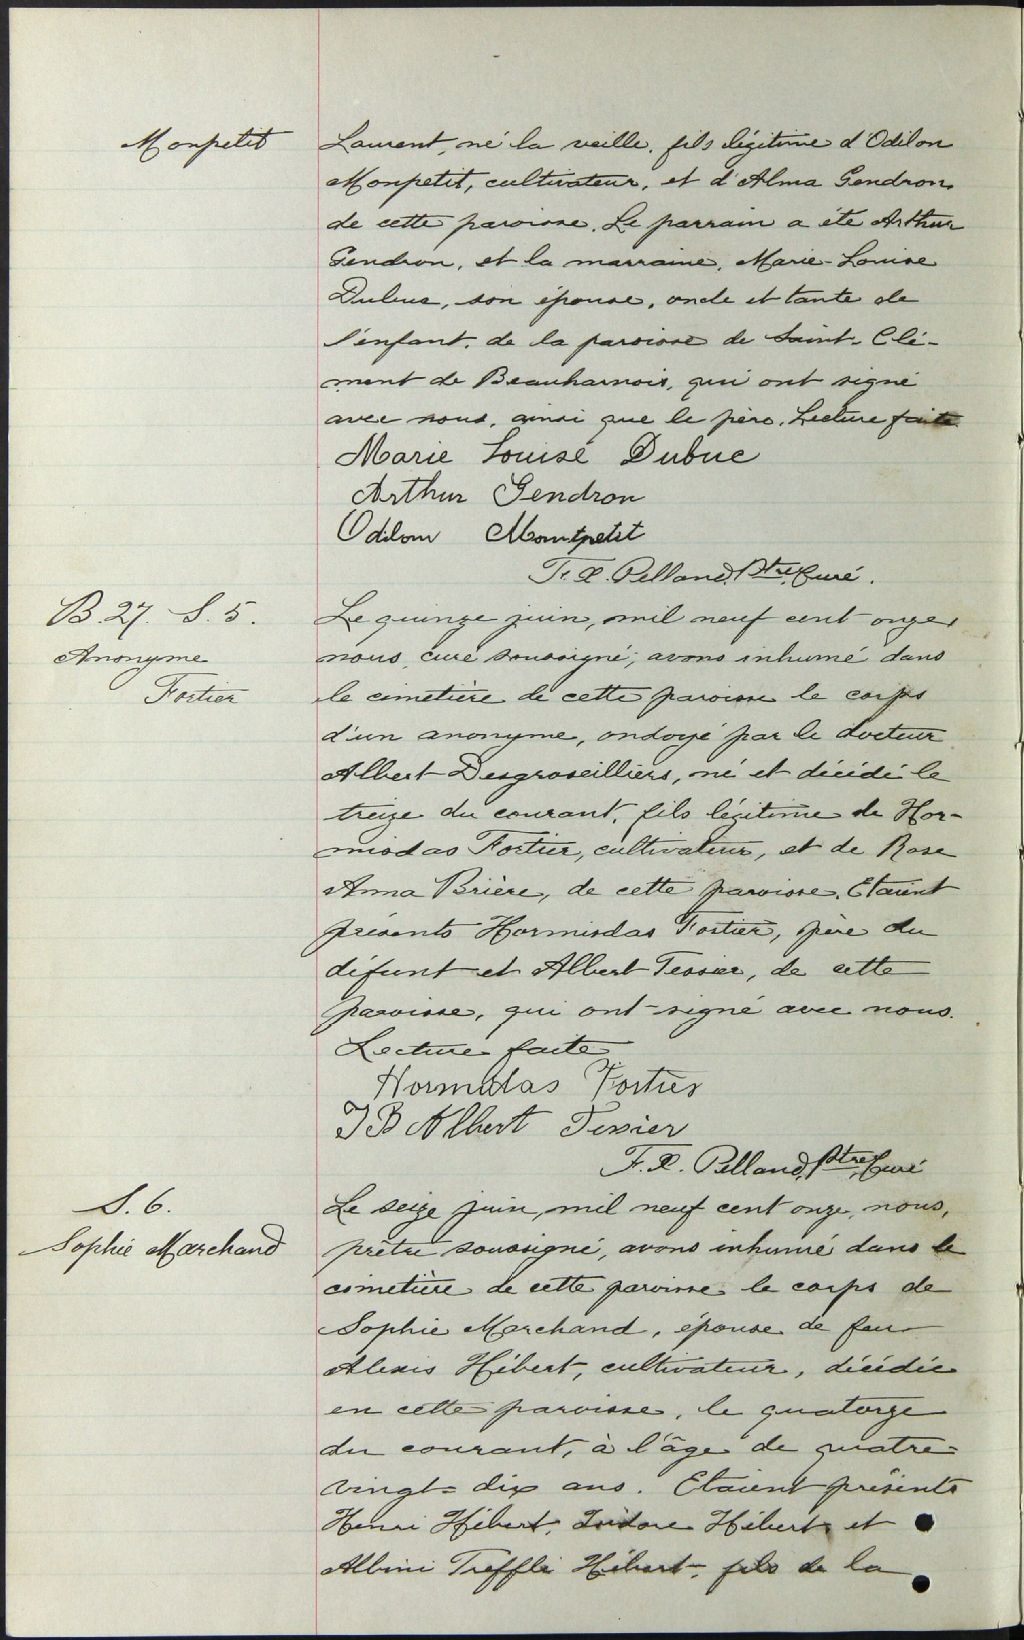 Monpetit
Laurent, né la veille, fils légitime d'Odilon
Monpetit, cultivateur, et d'Alma Gendron,
de cette paroisse. Le parrain a été Arthur
Gendron, et la marraine, Marie-Louise
Dubuc, son épouse, oncle et tante de
l'enfant, de la paroisse de Saint-Clé-
ment de Beauharnois, qui ont signé
avec nous, ainsi que le père. Lecture faite
Marie Louise Dubuc
Arthur Gendron
Odilon Montpetit
F. X. Pelland, Ptre, Curé.
B. 27. S. 5.
Anonyme
Fortier
Le quinze juin, mil neuf cent onze,
nous, curé soussigné, avons inhumé dans
le cimetière de cette paroisse le corps
d'un anonyme, ondoyé par le docteur
Albert Desgroseilliers, né et décédé le
treize du courant, fils légitime de Hor-
misdas Fortier, cultivateur, et de Rose
Anna Brière, de cette paroisse. Etaient
présents Hormisdas Fortier, père du
défunt et Albert Tessier, de cette
paroisse, qui ont signé avec nous.
Lecture faite
Hormidas Fortier
J B Albert Tessier
F. X. Pelland, Ptre, Curé
S. 6.
Sophie Marchand
Le seize juin, mil neuf cent onze, nous,
prêtre soussigné, avons inhumé dans le
cimetière de cette paroisse le corps de
Sophie Marchand, épouse de feu
Alexis Hébert, cultivateur, décédée
en cette paroisse, le quatorze
du courant, à l'âge de quatre-
vingt-dix ans. Etaient présents
Henri Hébert, Isidore Hébert et
Albini Treffle Hébert, fils de la